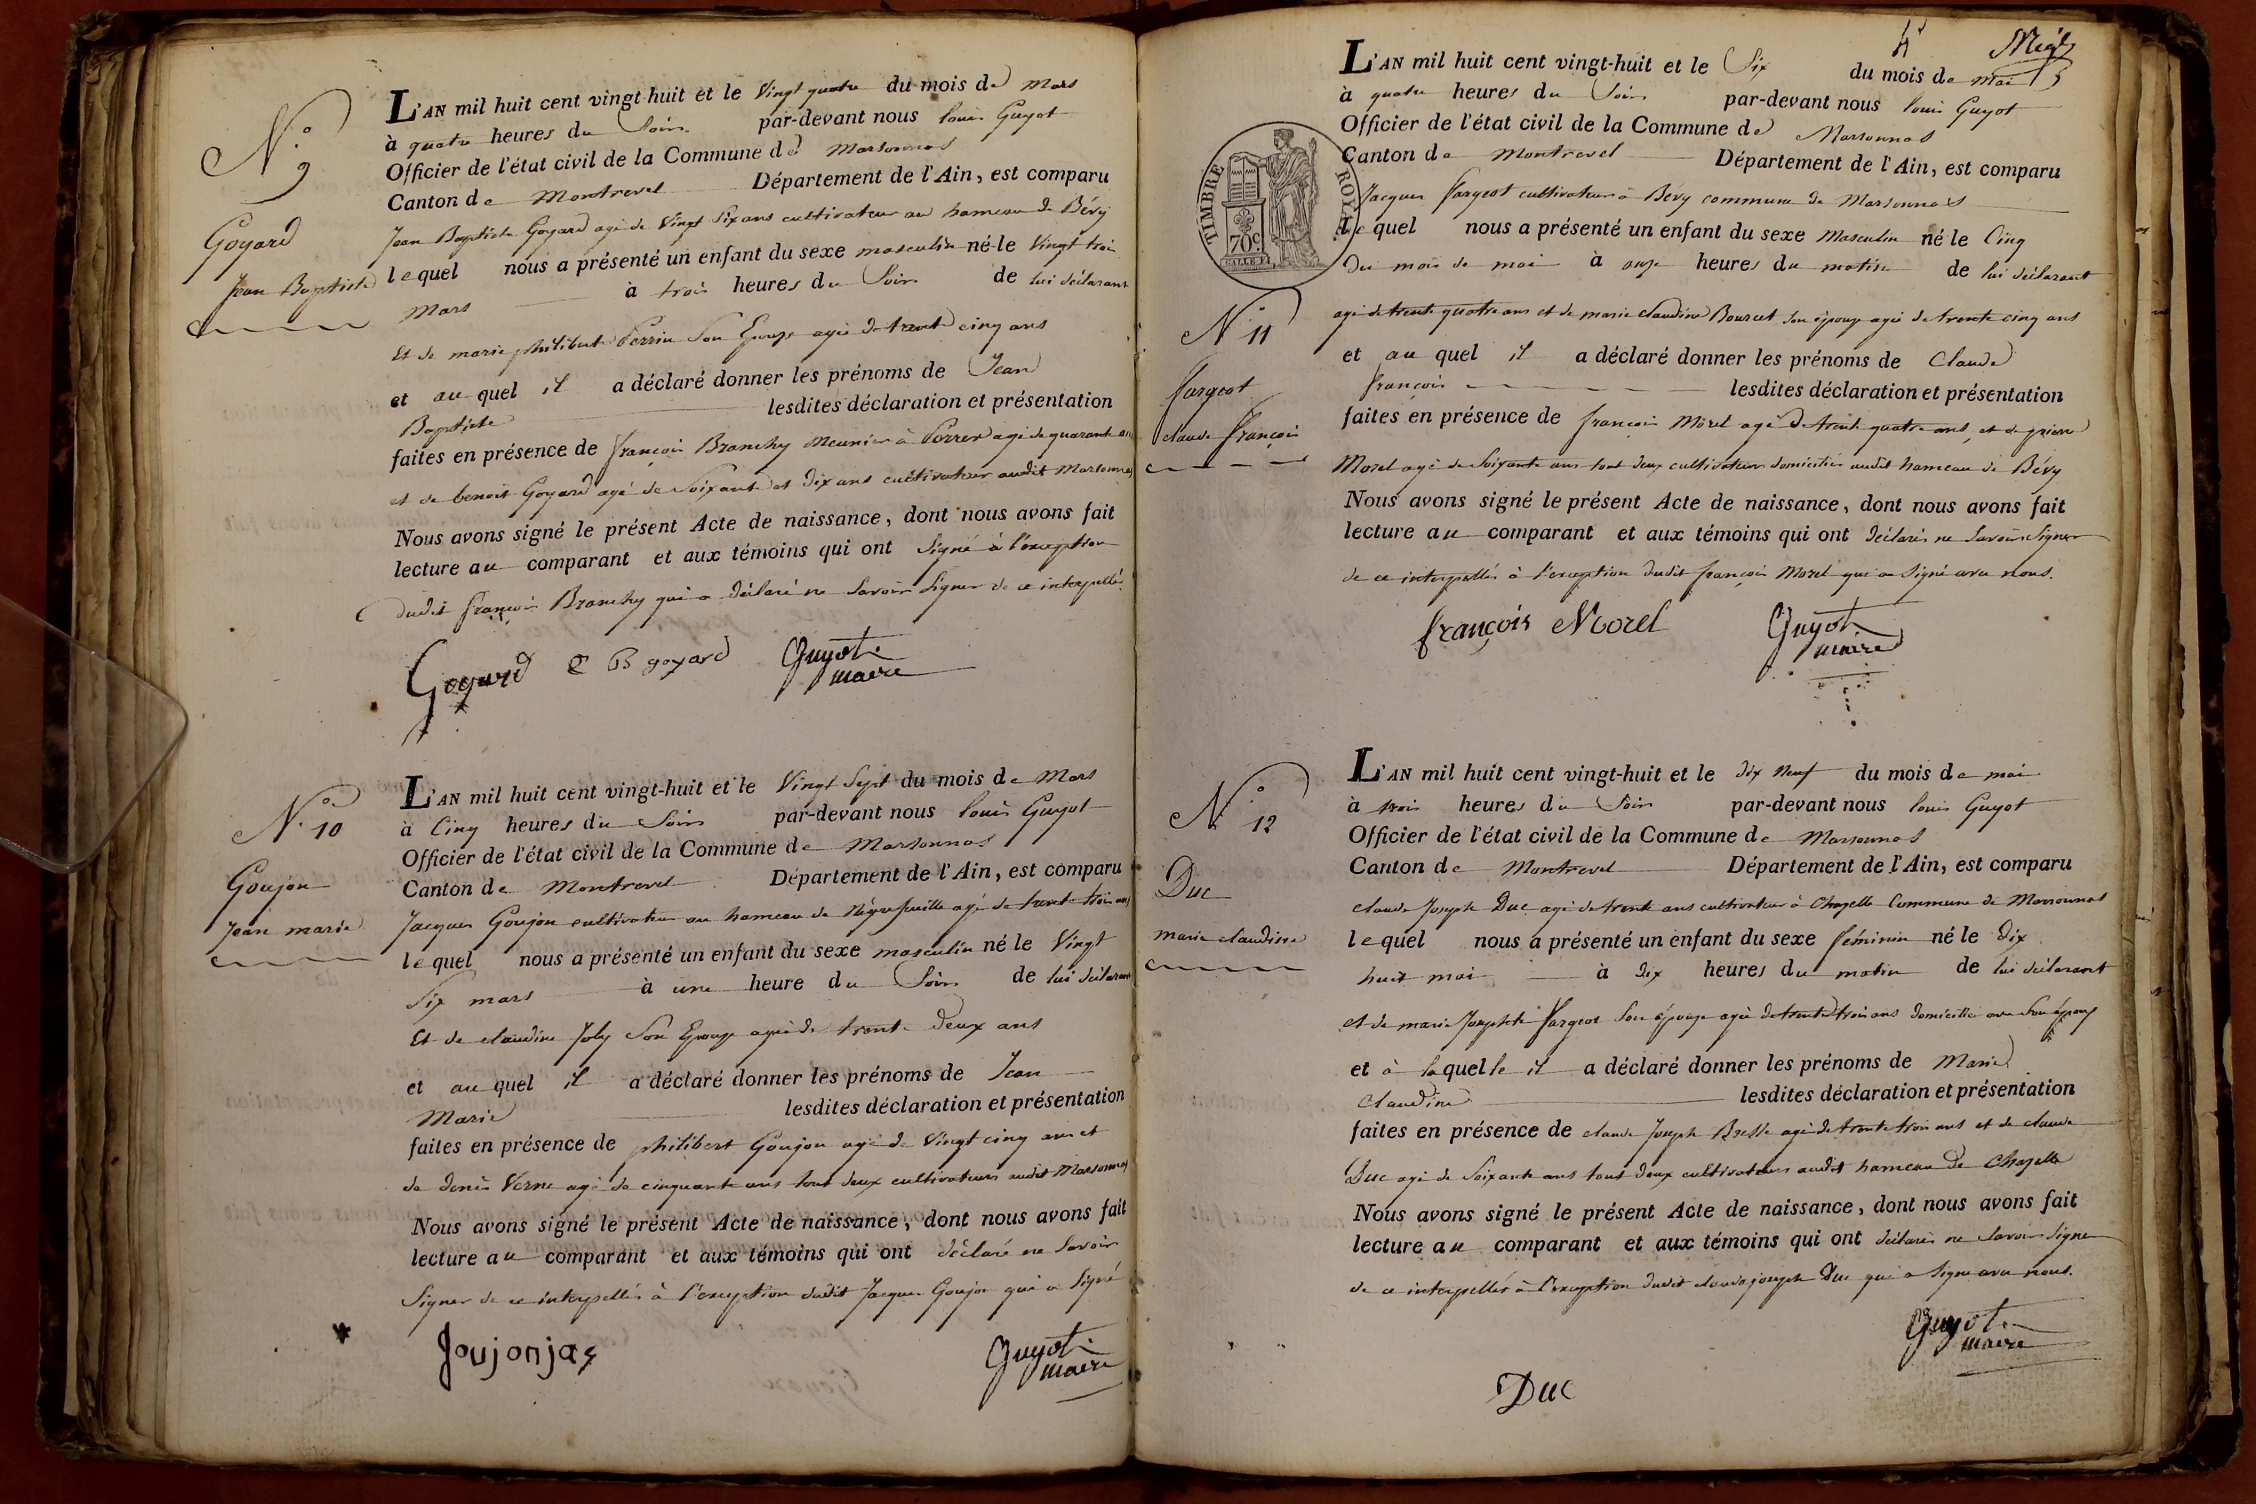 N.o 9
Goyard
Jean Baptiste
L'AN mil huit cent vingt-huit et le Vingt quatre du mois de Mars
à quatre heures du Soir par-devant nous louis Guyot
Officier de l'état civil de la Commune de Marsonnas
Canton de Montrevel Département de l'Ain, est comparu
Jean Baptiste Goyard agé de Vingt Six ans cultivateur au hameau de Bévy
lequel nous a présenté un enfant du sexe masculin né le Vingt trois
Mars à trois heures du Soir de lui déclarant
Et de marie philiberte Perrin Son Epouse agée de trente cinq ans
et au quel il a déclaré donner les prénoms de Jean
Baptiste lesdites déclaration et présentation
faites en présence de françois Branchy Meunier à agé de quarante ans
et de benoit Goyard agé de Soixante et dix ans cultivateur audit Marsonnas
Nous avons signé le présent Acte de naissance, dont nous avons fait
lecture au comparant et aux témoins qui ont Signé à l'exception
dudit françois Branchy qui a déclaré ne Savoir Signer de ce interpellé.
Goyard B goyard Guyot
maire
N.o 10
Goujon
Jean marie
L'AN mil huit cent vingt-huit et le Vingt Sept du mois de Mars
à Cinq heures du Soir par-devant nous louis Guyot
Officier de l'état civil de la Commune de Marsonnas
Canton de Montrevel Département de l'Ain, est comparu
Jacques Goujon cultivateur au hameau de agé de trente trois ans
lequel nous a présenté un enfant du sexe masculin né le Vingt
Six mars à une heure du Soir de lui déclarant
Et de claudine Joly Son Epouse agée de trente Deux ans
et au quel il a déclaré donner les prénoms de Jean
Marie lesdites déclaration et présentation
faites en présence de philibert Goujon agé de Vingt cinq ans et
de denis Verne agé de cinquante ans tout deux cultivateurs audit Marsonnas
Nous avons signé le présent Acte de naissance, dont nous avons fait
lecture au comparant et aux témoins qui ont déclaré ne Savoir
Signer de ce interpellés à l'exception dudit Jacques Goujon qui a Signé
Joujonjas Guyot
maire
TIMBRE ROYAL
70c
N.o 11
fargeot
claude françois
L'AN mil huit cent vingt-huit et le Six du mois de mai
à quatre heures du Soir par-devant nous louis Guyot
Officier de l'état civil de la Commune de Marsonnas
Canton de Montrevel Département de l'Ain, est comparu
Jacques fargeot cultivateur à Bévy commune de Marsonnas
lequel nous a présenté un enfant du sexe Masculin né le Cinq
Du mois de mai à onze heures du matin de lui déclarant
agé de trente quatre ans et de marie claudine Bourcet Son épouse agée de trente cinq ans
et au quel il a déclaré donner les prénoms de Claude
françois lesdites déclaration et présentation
faites en présence de françois Morel agé de trente quatre ans, et de pierre
Morel agé de Soixante ans tout deux cultivateurs domiciliés audit hameau de Bévy
Nous avons signé le présent Acte de naissance, dont nous avons fait
lecture au comparant et aux témoins qui ont déclarés ne Savoir Signer
de ce interpellés à l'exception dudit françois Morel qui a Signé avec nous.
françois Morel Guyot
maire
N.o 12
Duc
marie claudine
L'AN mil huit cent vingt-huit et le dix Neuf du mois de mai
à trois heures du Soir par-devant nous louis Guyot
Officier de l'état civil de la Commune de Marsonnas
Canton de Montrevel Département de l'Ain, est comparu
claude Joseph Duc agé de trente ans cultivateur à Chazelle Commune de Marsonnas
lequel nous a présenté un enfant du sexe féminin né le dix
huit mai à dix heures du matin de lui déclarant
et de marie Josephte fargeot Son épouse agée de trente trois ans domiciliée avec Son époux
et à laquelle il a déclaré donner les prénoms de Marie
Claudine lesdites déclaration et présentation
faites en présence de claude Joseph agé de trente trois ans et de claude
Duc agé de Soixante ans tout deux cultivateurs audit hameau de Chazelle
Nous avons signé le présent Acte de naissance, dont nous avons fait
lecture au comparant et aux témoins qui ont déclarés ne Savoir Signer
de ce interpellés à l'exception dudit claude joseph Duc qui a Signé avec nous.
Guyot
maire
Duc